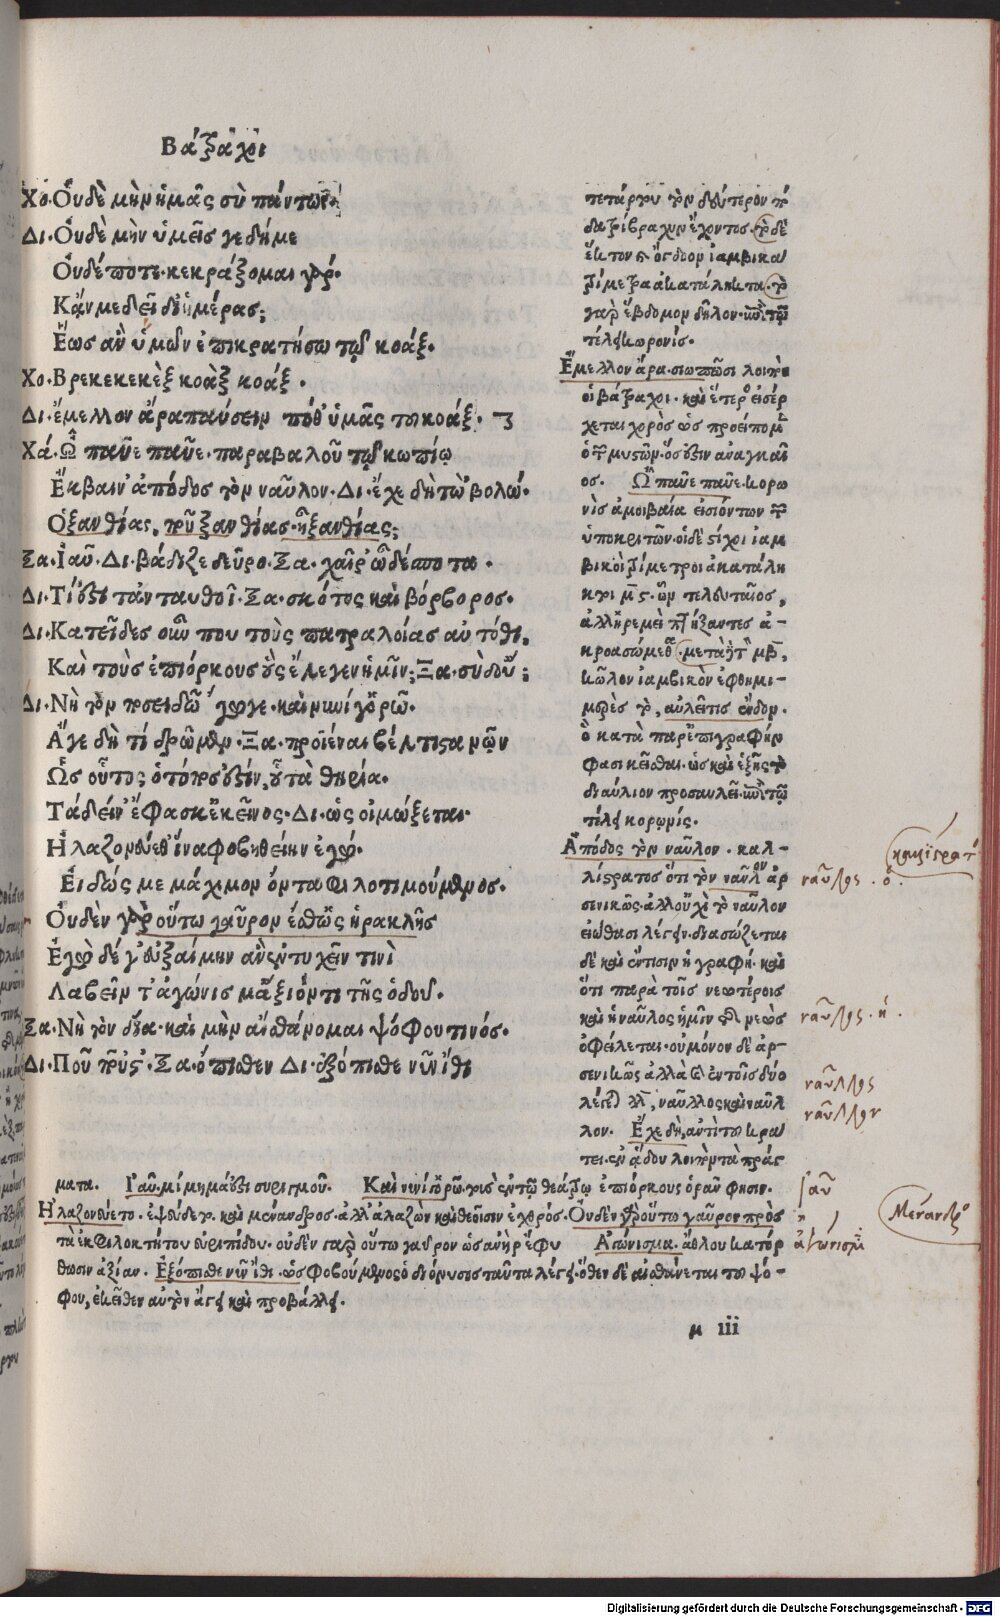 Βάτραχοι
Χο·Οὐδὲ μὴν ἡμᾶς σὺ πάντως·
Δι·Οὐδὲ μὴν ὑμεῖς γε δή με
Οὐδέποτε·κεκράξομαι γὰρ·
Κἄν με δεῖ δι' ἡμέρας;
Ἕως ἂν ὑμῶν ἐπικρατήσω τῷ κοάξ·
Χο·Βρεκεκεκὲξ κοὰξ κοάξ·
Δι·ἔμελλον ἄρα παύσειν ποθ' ὑμᾶς τοῦ κοάξ·
Χά·Ὦ παῦε παῦε·παραβαλοῦ τῷ κωπίῳ
Ἔκβαιν' ἀπόδος τὸν ναῦλον·Δι·ἔχε δὴ τὠβολώ·
Ὁ ξανθίας, ποῦ ξανθίας·ἢ ξανθίας;
Ξα·Ἰαῦ·Δι·βάδιζε δεῦρο·Ξα·χαῖρ' ὦ δέσποτα·
Δι·Τί ἐστι τἀνταυθοῖ·Ξα·σκότος καὶ βόρβορος·
Δι·Κατεῖδες οὖν που τοὺς πατραλοίας αὐτόθι,
Καὶ τοὺς ἐπιόρκους οὓς ἔλεγεν ἡμῖν;Ξα·σὺ δ' οὔ;
Δι·Νὴ τὸν ποσειδῶ ἔγωγε·καὶ νυνί γ' ὁρῶ·
Ἄγε δὴ τί δρῶμεν·Ξα·προϊέναι βέλτιστα νῷν
Ὡς οὗτος ὁ τόπος ἐστίν, οὗ τὰ θηρία·
Τὰ δείν' ἔφασκ' ἐκεῖνος·Δι·ὡς οἰμώξεται·
Ἠλαζονεύεθ' ἵνα φοβηθείην ἐγώ·
Εἰδώς με μάχιμον ὄντα φιλοτιμούμενος·
Οὐδὲν γὰρ οὕτω γαῦρον ἔσθ' ὡς ἡρακλῆς
Ἐγὼ δέ γ' εὐξαίμην ἂν ἐντυχεῖν τινὶ
Λαβεῖν τ' ἀγώνισμ' ἄξιόν τι τῆς ὁδοῦ·
Ξα·Νὴ τὸν δία·καὶ μὴν αἰσθάνομαι ψόφου τινός·
Δι·Ποῦ ποῦ 'ς·Ξα·ὄπισθεν Δι·ἐξόπισθε νῦν ἴθι
πετάργυ τὸν δεύτερον
ἕκτον ϛ·ὄγδοον ἰαμβικὰ
τρίμετρα ἀκατάληκτα·τὸ
γὰρ ἕβδομον δῆλον·ἐπὶ τῷ
τέλει κορωνίς·
Ἔμελλον ἄρα·σιωπῶσι λοιπὸν
οἱ βάτραχοι·καὶ ἕτερος εἰσέρ
χεται χορὸς ὡς προείπομεν
ὁ τῶν μυστῶν·ὅς ἐστιν ἀναγκαῖ
ος. Ὢ παῦε παῦε·κορω
νὶς ἀμοιβαία εἰσιόντων τῶν
ὑποκριτῶν·οἱ δὲ στίχοι ἰαμ
βικοὶ τρίμετροι ἀκατάλη
κτοι μϛ·ὧν τελευταῖος,
ἀλλ' ἠρεμεὶ πτήξαντες ἀ-
κροασώμεθα·μετὰ τὸν μβ,
κῶλον ἰαμβικὸν ἐφθημι-
μερὲς τὸ, αὐλεῖ τις ἔνδον·
ὃ κατὰ παρεπιγραφήν
φασι κεῖσθαι·ὡς καὶ ἑξῆς τὸ
διαύλιον προσαυλεῖ·ἐπὶ τῷ
τέλει κορωνίς·
Ἀπόδος τὸν ναῦλον·καλ-
λίστρατος ὅτι τὸν ναῦλον ἀρ
σενικῶς·ἀλλ' οὐχὶ τὸ ναῦλον
εἰώθασι λέγειν·διασώζεται
δὲ καὶ ἔν τισιν ἡ γραφή·καὶ
ὅτι παρὰ τοῖς νεωτέροις
καὶ ἡ ναῦλος ἡμῖν τῆς νεὼς
ὀφείλεται·οὐ μόνον δὲ ἀρ-
σενικῶς ἀλλὰ καὶ ἐν τοῖς δύο
λέγεται λλ, ναῦλλος καὶ ναῦλ
λον· Ἔχε δὴ, ἀντὶ τοῦ κρα
τεῖ·ἐν ᾅδου λοιπὸν τὰ πράγ
ματα. Ἰαῦ·μίμημά ἐστι συριγμοῦ. Καὶ νυνί γ' ὁρῶ·πρὸς ἐν τῷ θεάτρῳ ἐπιόρκους ὁρᾶν φησιν·
Ἠλαζονεύετο·ἐψεύδετο·καὶ μένανδρος·ἀλλ' ἀλαζὼν καὶ θεοῖσιν ἐχθρός·Οὐδὲν γὰρ οὕτω γαῦρον πρὸς
τὰ ἐκ φιλοκτήτου εὐριπίδου·οὐδὲν γὰρ οὕτω γαῦρον ὡς ἀνὴρ ἔφυ Ἀγώνισμα·ἄθλου κατόρ
θωσιν ἀξίαν. Ἐξόπισθε νῦν ἴθι·ὡς φοβούμενος ὁ διόνυσος ταῦτα λέγει·ὅθεν δὲ αἰσθάνεται τοῦ ψό-
φου, ἐκεῖθεν αὐτὸν ἄγει καὶ προβάλλει·
μ iii
ναῦλος·ὁ·
ναῦλος·ἡ·
ναῦλλος
ναῦλλον
ἰαῦ
Μένανδρος
ἀγώνισμα